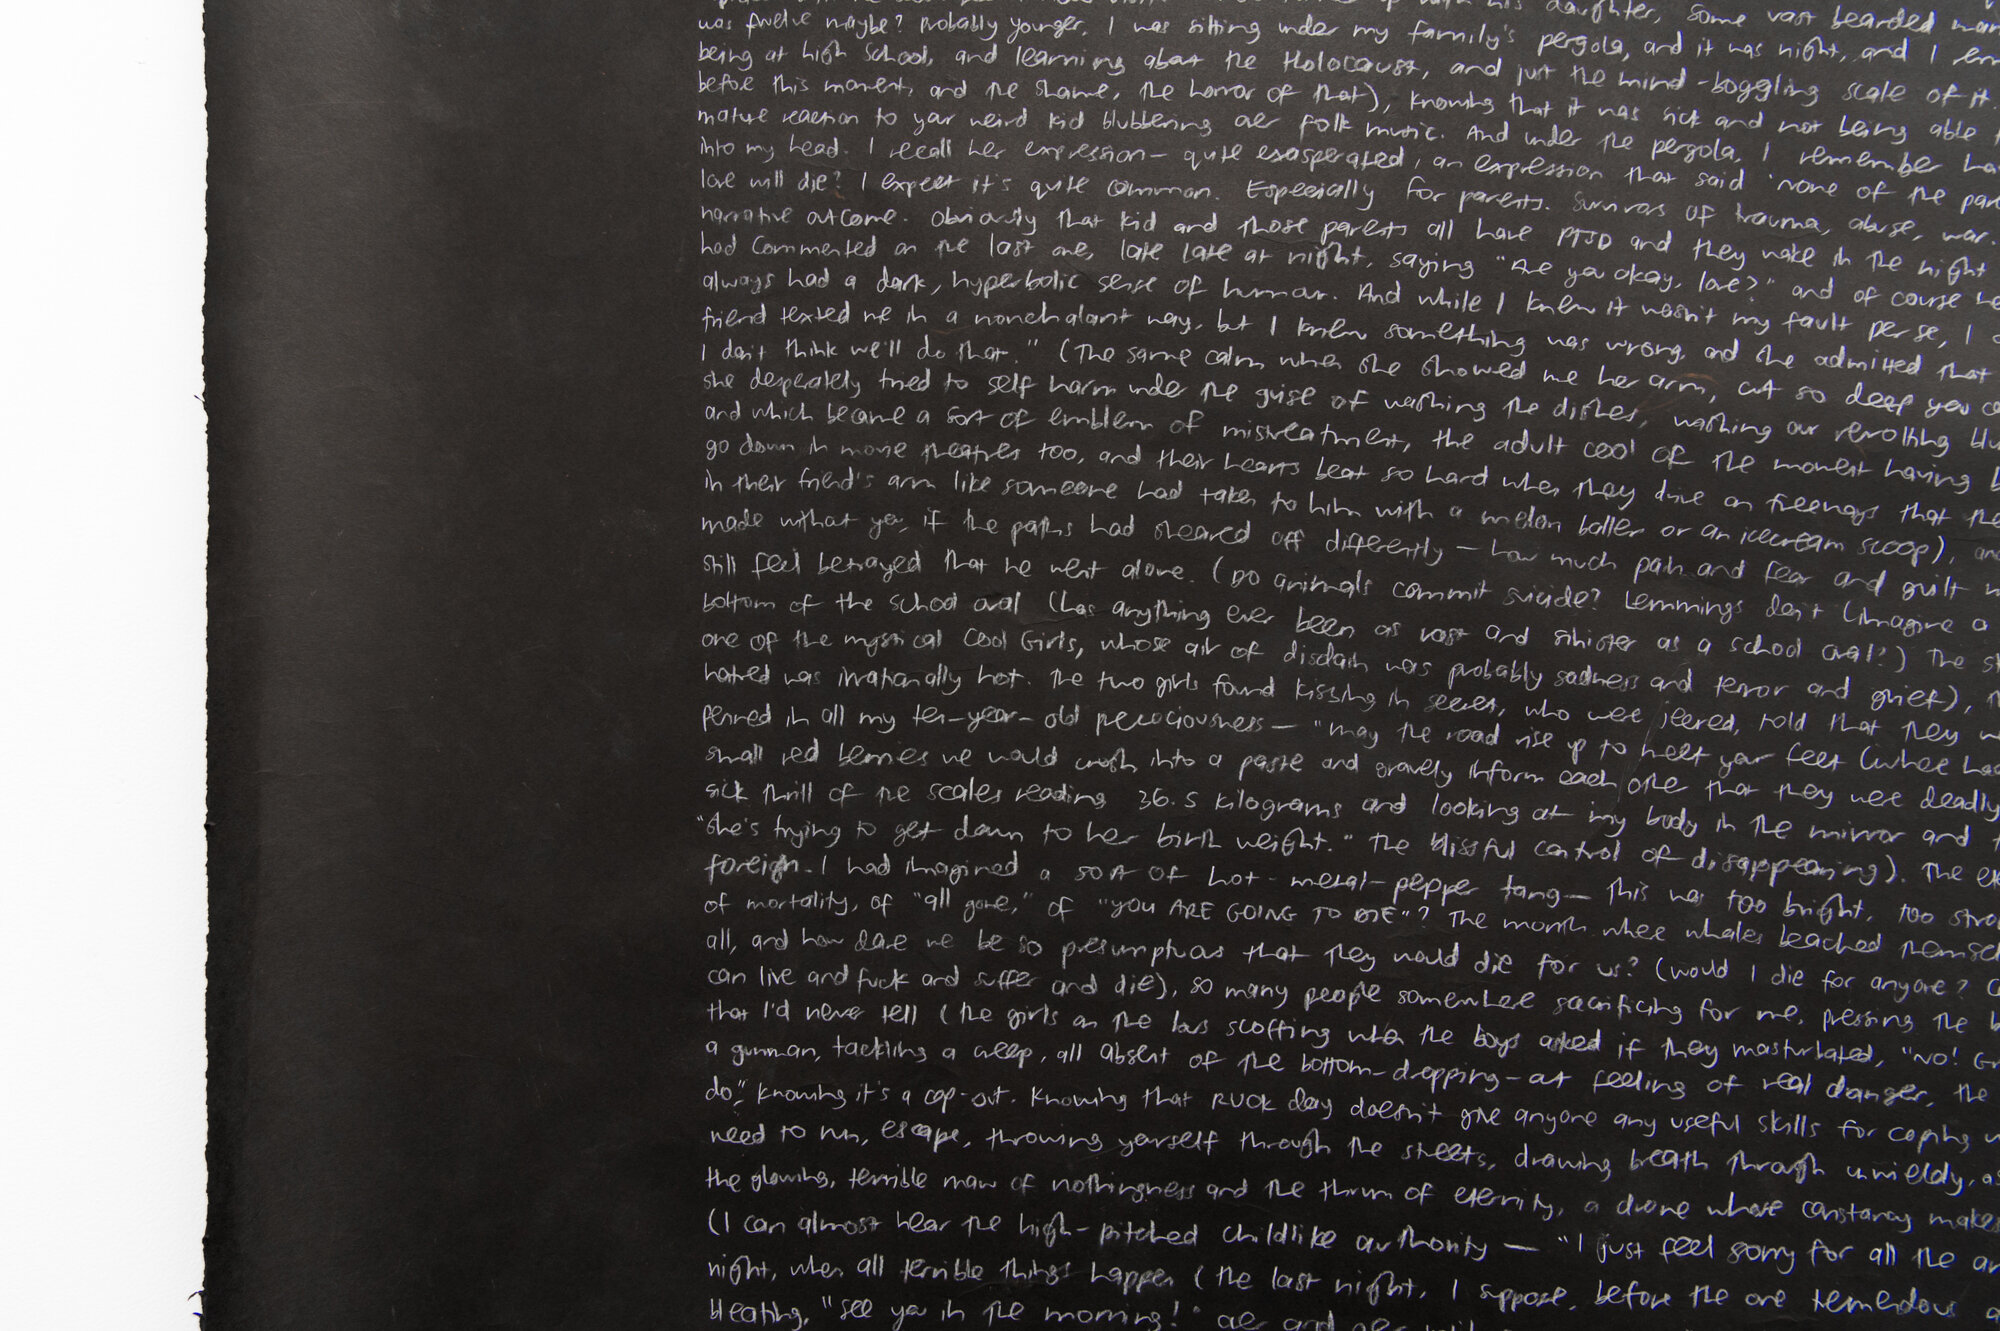 his daughter, some vast bearded man
was twelve maybe? Probably younger. I was sitting under my family's pergola, and it was night, and I
being at high school, and learning about the Holocaust, and just the mind-boggling scale of it.
before this moment, and the shame, the horror of that), knowing that it was sick and not being able
mature reaction to your weird kid blubbering over folk music. And under the pergola, I remember
into my head. I recall her expression - quite exasperated, an expression that said 'none of the
love will die? I expect it's quite common. Especially for parents. Survivors of trauma, abuse, war.
narrative outcome. Obviously that kid and those parents all have PTSD and they wake in the night
had commented on the last one, late late at night, saying "Are you okay, love?" and of course
always had a dark, hyperbolic sense of humour. And while I knew it wasn't my fault per se, I
friend texted me in a nonchalant way, but I knew something was wrong, and she admitted that
I don't think we'll do that." (The same calm when she showed me her arm, cut so deep you
she desperately tried to self harm under the guise of washing the dishes, washing our revolting
and which became a sort of emblem of mistreatment, the adult cool of the moment having
go down in movie theatres too, and their hearts beat so hard when they drive on freeways that
in their friend's arm like someone had taken to him with a melon baller or an icecream scoop), and
made without you, if the paths had sheared off differently - how much pain and fear and guilt
still feel betrayed that he went alone. (Do animals commit suicide? Lemmings don't (imagine a
bottom of the school oval (has anything ever been as vast and sinister as a school oval?) The
one of the mystical Cool Girls, whose air of disdain was probably sadness and terror and grief),
hatred was irrationally hot. The two girls found kissing in , who were jeered, told that they
penned in all my ten-year-old precociousness - "may the road rise up to meet your feet
small red berries we would crush into a paste and gravely inform each other that they were deadly
sick thrill of the scales reading 36.5 kilograms and looking at my body in the mirror and
"She's trying to get down to her birth weight." The blissful control of disappearing). The
foreign. I had imagined a sort of hot-metal-pepper tang - this was too bright, too
of mortality, of "all gone," of "YOU ARE GOING TO DIE"? The month where whales beached
all, and how dare we be so presumptuous that they would die for us? (Would I die for anyone?
can live and fuck and suffer and die), so many people somewhere sacrificing for me, pressing the
that I'd never tell (the girls on the bus scoffing when the boys asked if they masturbated, "No!
a gunman, tackling a creep, all absent of the bottom-dropping-out feeling of real danger, the
do," knowing it's a cop-out. Knowing that RUOK day doesn't give anyone any useful skills for coping
need to run, escape, throwing yourself through the streets, drawing breath through unwieldy,
the glowing, terrible maw of nothingness and the thrum of eternity, a drone whose constancy makes
(I can almost hear the high-pitched childlike authority — "I just feel sorry for all the
night, when all terrible things happen (the last night, I suppose, before the one tremendous
bleating, "see you in the morning!" over and over